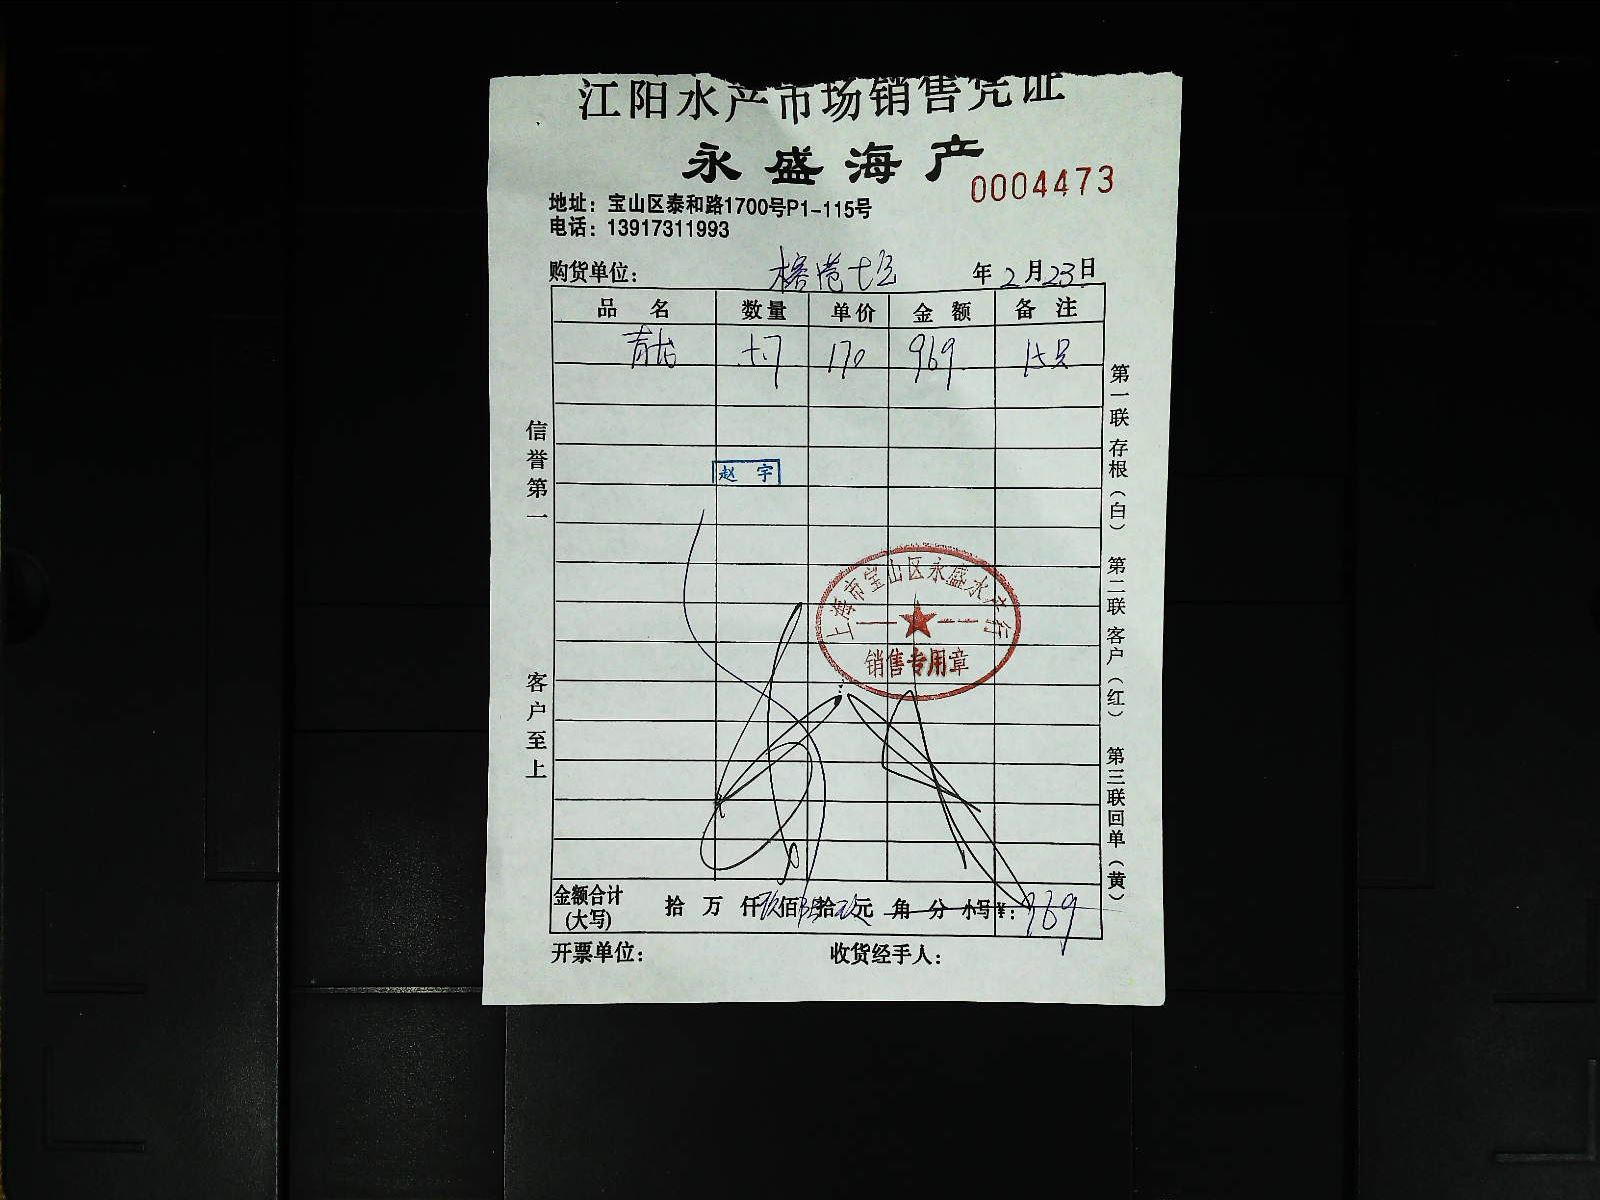 江阳水产市场销售凭证
永盛海产
0004473
地址：宝山区泰和路1700号P1-115号
电话：13917311993
购货单位： 榕港 年 2 月 23 日
品名 数量 单价 金额 备注
青龙 5.7 170 969 15只
赵宇
信誉第一
客户至上
第一联 存根（白）
第二联 客户（红）
第三联 回单（黄）
上海市宝山区永盛水产行
销售专用章
金额合计
(大写) 拾 万 仟 玖 佰 陆 拾 玖 元 角 分 小写¥： 969
开票单位： 收货经手人：